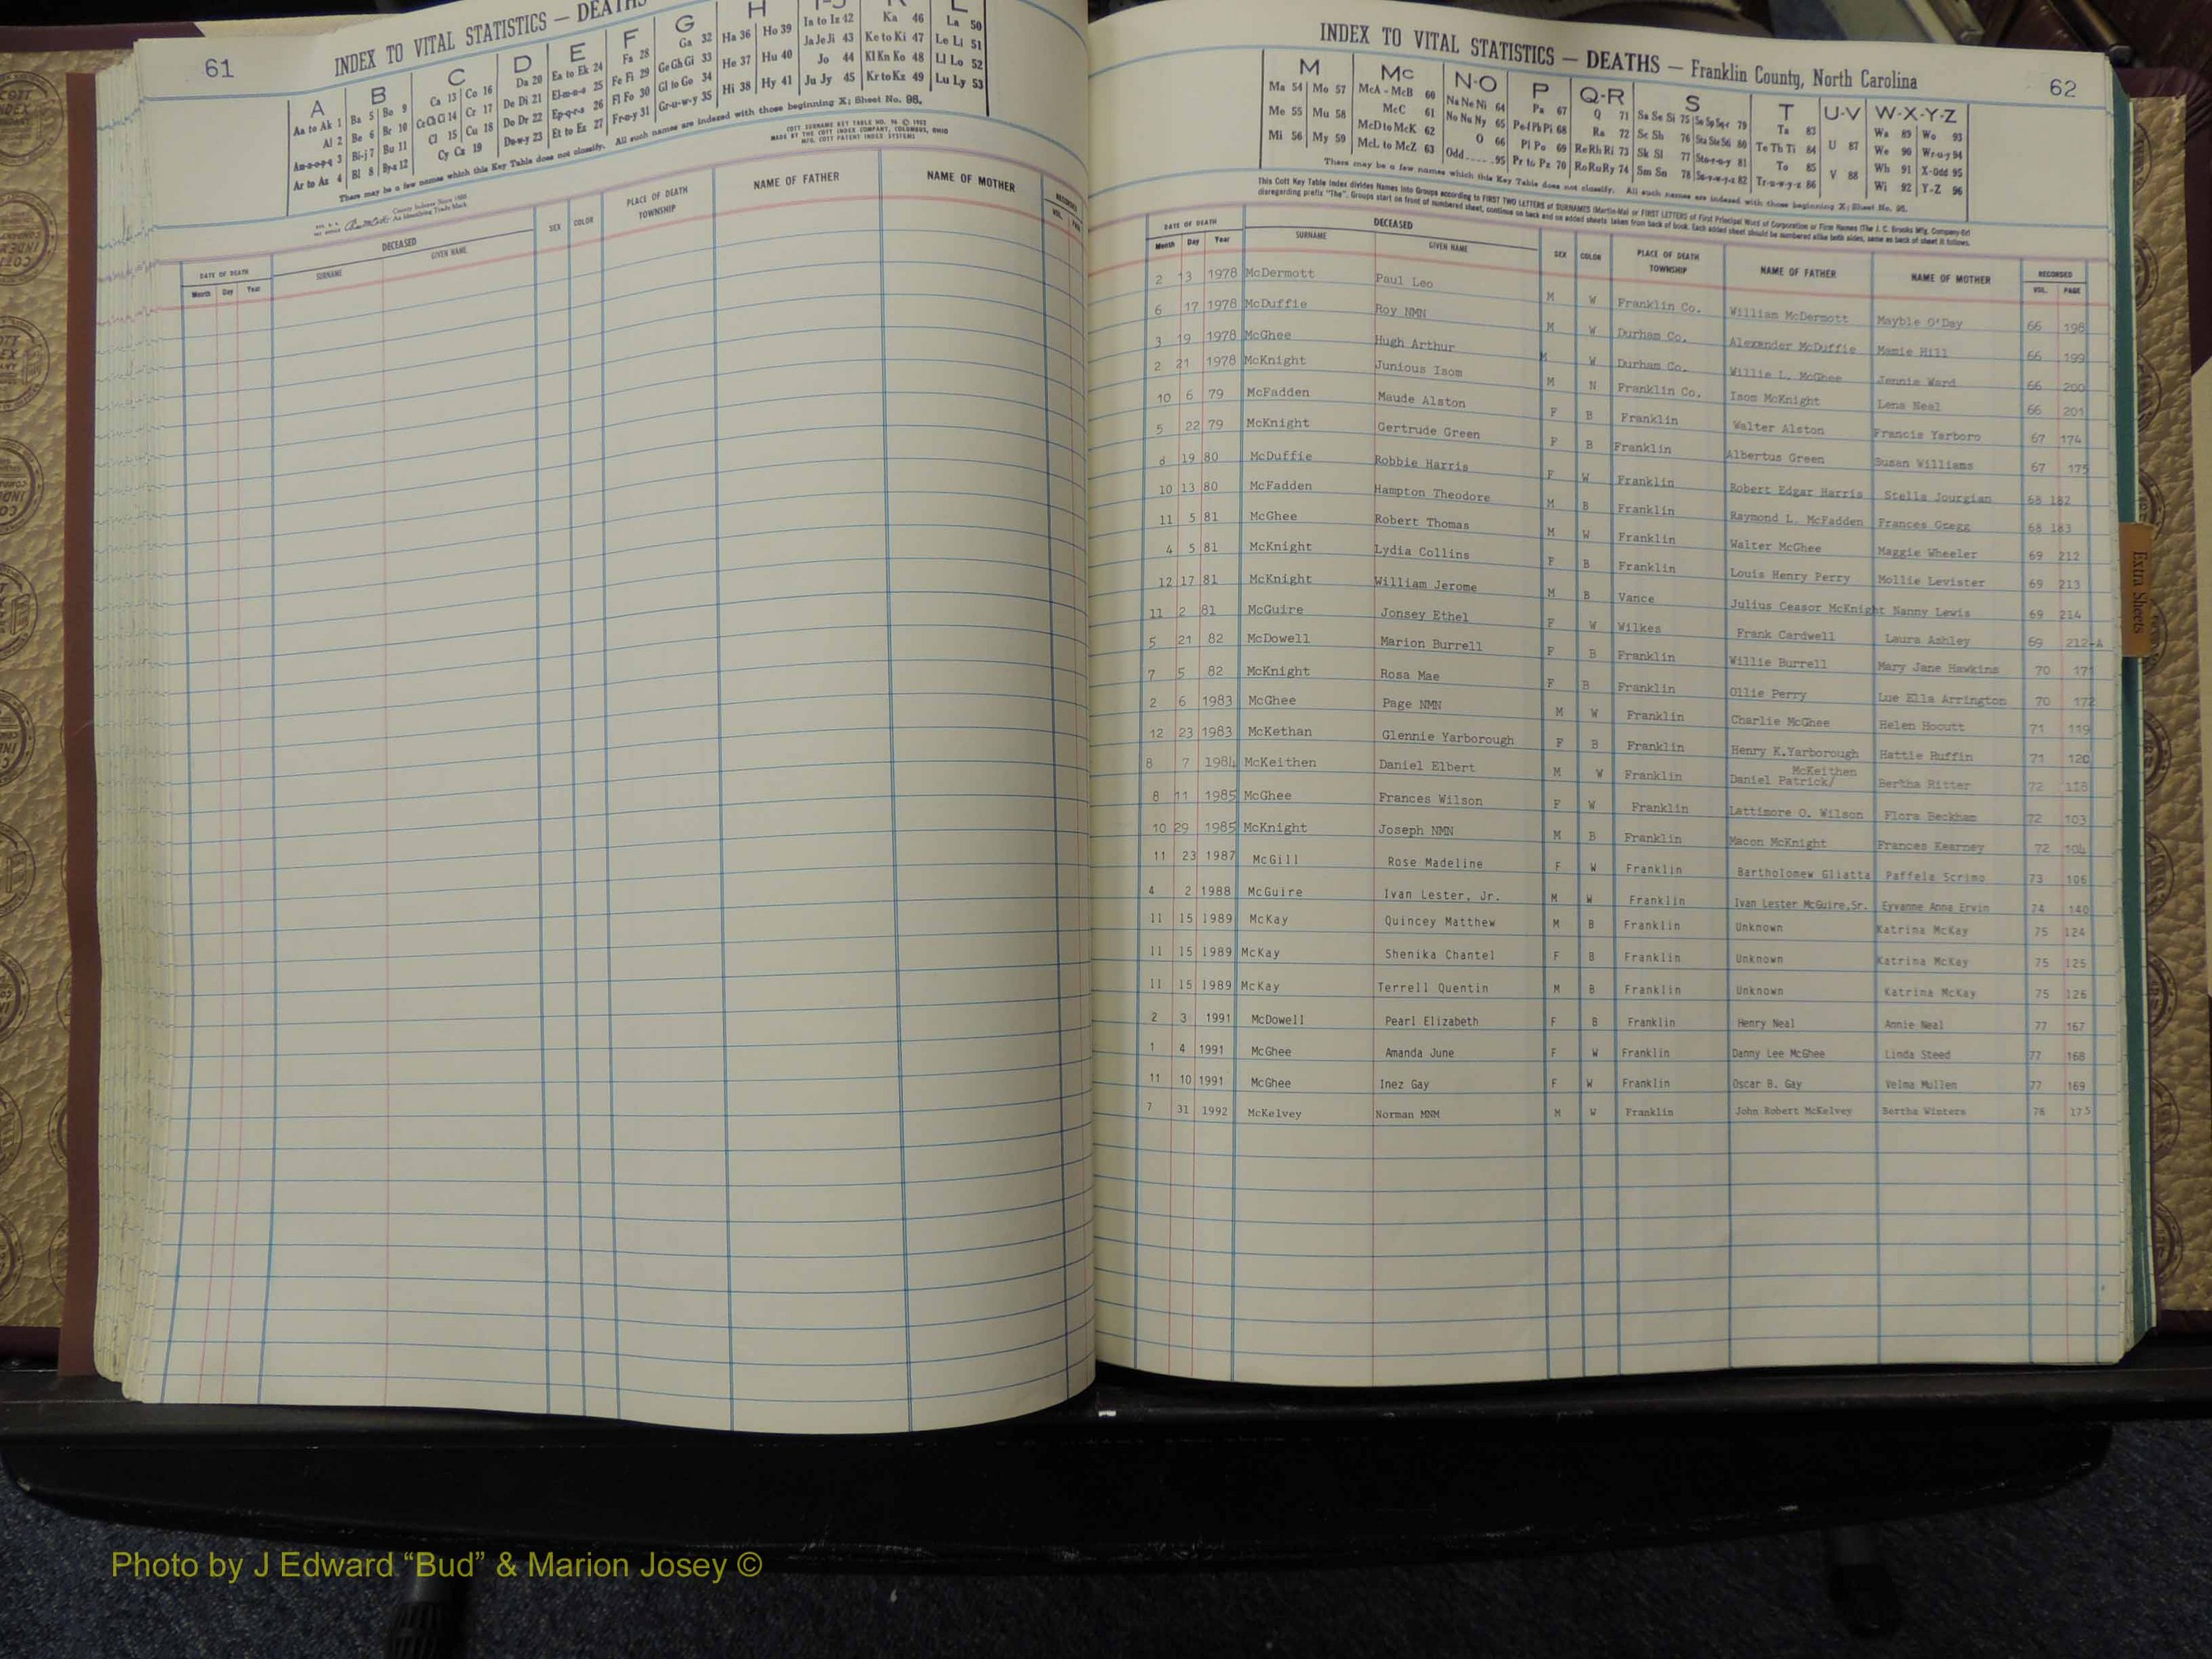 61
INDEX TO VITAL STATISTICS — DEATHS
A B C D E F G H I-J K L
Aa to Ak 1 Ba 5 Bo 9 Ca 13 Co 16 Da 20 Ea to Ek 24 Fa 28 Ga 32 Ha 36 Ho 39 Ia to Iz 42 Ka 46 La 50
Al 2 Be 6 Br 10 Ce Ch Ci 14 Cr 17 De Di 21 El-m-n-o 25 Fe Fi 29 Ge Gh Gi 33 He 37 Hu 40 Ja Je Ji 43 Ke to Ki 47 Le Li 51
An-o-p-q 3 Bi-j 7 Bu 11 Cl 15 Cu 18 Do Dr 22 Ep-q-r-s 26 Fl Fo 30 Gl to Go 34 Hi 38 Hy 41 Jo 44 Kl Kn Ko 48 Ll Lo 52
Ar to Az 4 Bl 8 By-z 12 Cy Cz 19 Du-w-y 23 Et to Ez 27 Fr-u-y 31 Gr-u-w-y 35 Ju Jy 45 Kr to Kz 49 Lu Ly 53
There may be a few names which this Key Table does not classify. All such names are indexed with those beginning X; Sheet No. 98.
COTT SURNAME KEY TABLE NO. 96 © 1952
MADE BY THE COTT INDEX COMPANY, COLUMBUS, OHIO
MFG. COTT PATENT INDEX SYSTEMS
County Indexes Since 1888
An Identifying Trade Mark
DATE OF DEATH DECEASED SEX COLOR PLACE OF DEATH TOWNSHIP NAME OF FATHER NAME OF MOTHER RECORDED
Month Day Year SURNAME GIVEN NAME VOL.
INDEX TO VITAL STATISTICS — DEATHS — Franklin County, North Carolina
62
M Mc N-O P Q-R S T U-V W-X-Y-Z
Ma 54 Mo 57 McA - McB 60 Na Ne Ni 64 Pa 67 Q 71 Sa Sc Si 75 So Sp Sq-r 79 Ta 83 U 87 Wa 89 Wo 93
Me 55 Mu 58 McC 61 No Nu Ny 65 Pe-f Ph Pi 68 Ra 72 Se Sh 76 Sta Ste St 80 Te Th Ti 84 V 88 We 90 Wr-u-y 94
Mi 56 My 59 McD to McK 62 O 66 Pl Po 69 Re Rh Ri 73 Sk Sl 77 Sto-r-u-y 81 To 85 Wh 91 X-Odd 95
McL to McZ 63 Odd 95 Pr to Pz 70 Ro Ru Ry 74 Sm Sn 78 Su-v-w-y-z 82 Tr-u-w-y-z 86 Wi 92 Y-Z 96
There may be a few names which this Key Table does not classify. All such names are indexed with those beginning X; Sheet No. 98.
This Cott Key Table Index divides Names into Groups according to FIRST TWO LETTERS of SURNAMES (Martin-Ma) or FIRST LETTERS of First Principal Word of Corporation or Firm Names (The J. C. Brooks Mfg. Company-Br)
disregarding prefix "The". Groups start on front of numbered sheet, continue on back and on added sheets taken from back of book. Each added sheet should be numbered alike both sides, same as back of sheet it follows.
DATE OF DEATH DECEASED SEX COLOR PLACE OF DEATH TOWNSHIP NAME OF FATHER NAME OF MOTHER RECORDED
Month Day Year SURNAME GIVEN NAME VOL. PAGE
2 13 1978 McDermott Paul Leo M W Franklin Co. William McDermott Mayble O'Day 66 198
6 17 1978 McDuffie Roy NMN M W Durham Co. Alexander McDuffie Mamie Hill 66 199
3 19 1978 McGhee Hugh Arthur M W Durham Co. Willie L. McGhee Jennie Ward 66 200
2 21 1978 McKnight Junious Isom M N Franklin Co. Isom McKnight Lena Neal 66 201
10 6 79 McFadden Maude Alston F B Franklin Walter Alston Francis Yarboro 67 174
5 22 79 McKnight Gertrude Green F B Franklin Albertus Green Susan Williams 67 175
19 80 McDuffie Robbie Harris F W Franklin Robert Edgar Harris Stella Jourgian 68 182
10 13 80 McFadden Hampton Theodore M B Franklin Raymond L. McFadden Frances Gregg 68 183
11 5 81 McGhee Robert Thomas M W Franklin Walter McGhee Maggie Wheeler 69 212
4 5 81 McKnight Lydia Collins F B Franklin Louis Henry Perry Mollie Levister 69 213
12 17 81 McKnight William Jerome M B Vance Julius Ceasor McKnight Nanny Lewis 69 214
11 2 81 McGuire Jonsey Ethel F W Wilkes Frank Cardwell Laura Ashley 69 212-A
5 21 82 McDowell Marion Burrell F B Franklin Willie Burrell Mary Jane Hawkins 70 171
7 5 82 McKnight Rosa Mae F B Franklin Ollie Perry Lue Ella Arrington 70 172
2 6 1983 McGhee Page NMN M W Franklin Charlie McGhee Helen Hocutt 71 119
12 23 1983 McKethan Glennie Yarborough F B Franklin Henry K.Yarborough Hattie Ruffin 71 120
8 7 1984 McKeithen Daniel Elbert M W Franklin Daniel Patrick/ McKeithen Bertha Ritter 72 118
8 11 1985 McGhee Frances Wilson F W Franklin Lattimore O. Wilson Flora Beckham 72 103
10 29 1985 McKnight Joseph NMN M B Franklin Macon McKnight Frances Kearney 72 104
11 23 1987 McGill Rose Madeline F W Franklin Bartholomew Gliatta Paffela Scrimo 73 106
4 2 1988 McGuire Ivan Lester, Jr. M W Franklin Ivan Lester McGuire,Sr. Eyvanne Anna Ervin 74 140
11 15 1989 McKay Quincey Matthew M B Franklin Unknown Katrina McKay 75 124
11 15 1989 McKay Shenika Chantel F B Franklin Unknown Katrina McKay 75 125
11 15 1989 McKay Terrell Quentin M B Franklin Unknown Katrina McKay 75 126
2 3 1991 McDowell Pearl Elizabeth F B Franklin Henry Neal Annie Neal 77 167
1 4 1991 McGhee Amanda June F W Franklin Danny Lee McGhee Linda Steed 77 168
11 10 1991 McGhee Inez Gay F W Franklin Oscar B. Gay Velma Mullen 77 169
7 31 1992 McKelvey Norman MNM M W Franklin John Robert McKelvey Bertha Winters 78 175
Extra Sheets
Photo by J Edward “Bud” & Marion Josey ©